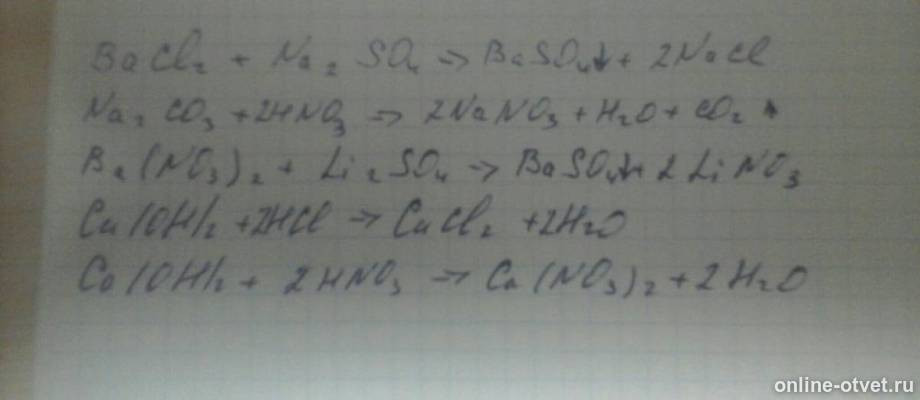 BaCl₂ + Na₂SO₄ → BaSO₄↓ + 2NaCl
Na₂CO₃ + 2HNO₃ → 2NaNO₃ + H₂O + CO₂
Ba(NO₃)₂ + Li₂SO₄ → BaSO₄↓ + 2LiNO₃
Cu(OH)₂ + 2HCl → CuCl₂ + 2H₂O
Ca(OH)₂ + 2HNO₃ → Ca(NO₃)₂ + 2H₂O
online-otvet.ru